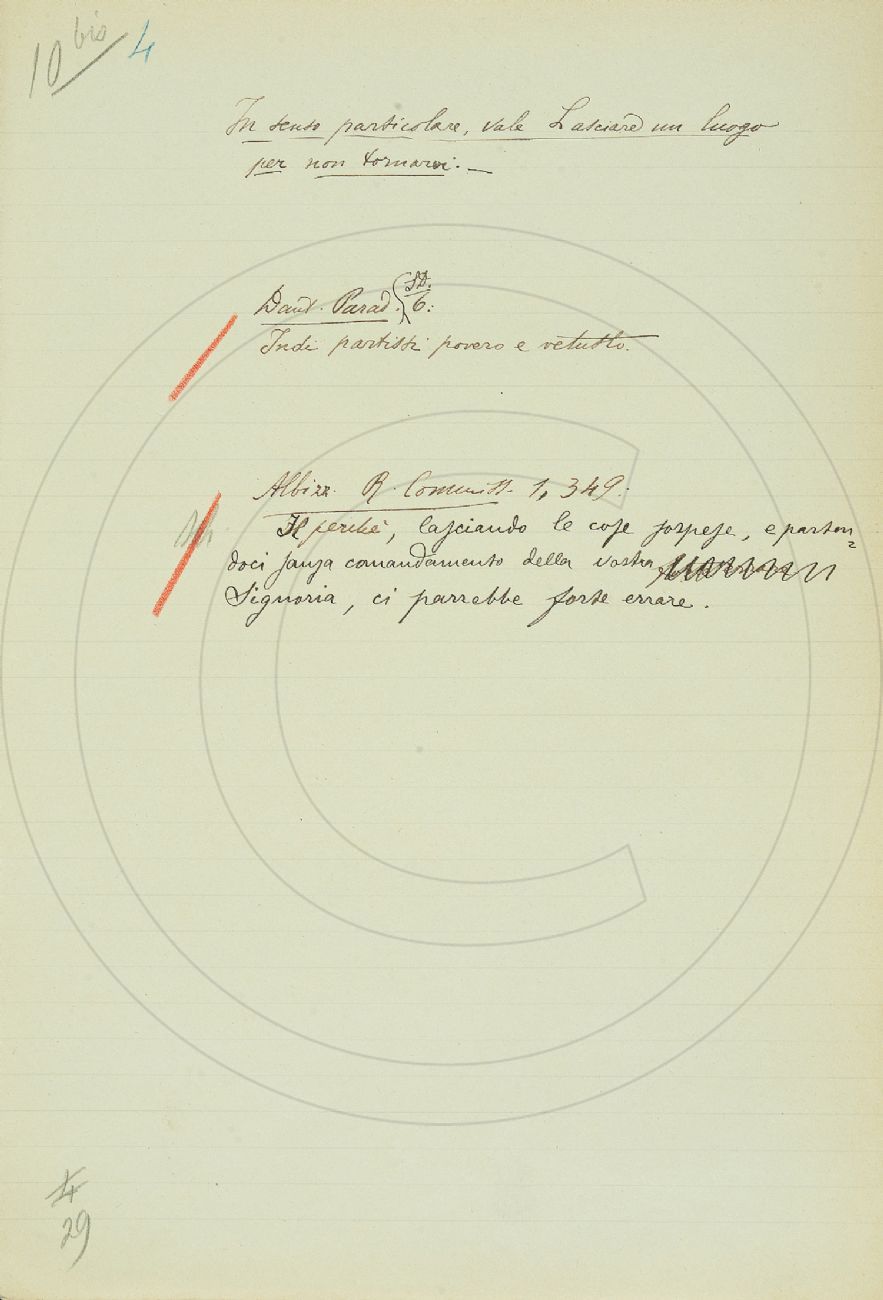 10 bis 4
In senso particolare, vale Lasciare un luogo
per non tornarvi. —
Dant. Parad. SD. 6:
Indi partissi povero e vetusto.
Albizz. R. Commiss. 1, 349.
Il perchè, lasciando le cose sospese, e parten=
doci sanza comandamento della vostra
Signoria, ci parrebbe forte errare.
4
29